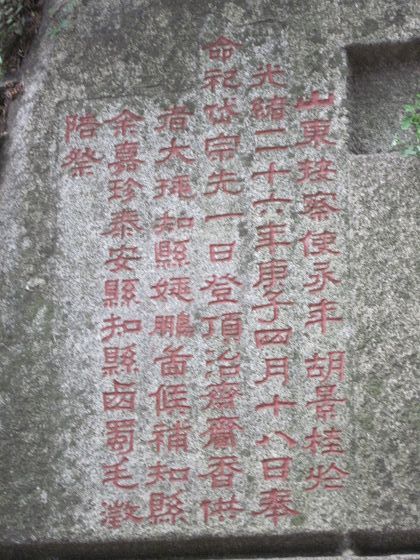 山東按察使永年胡景桂於
光緒二十六年庚子四月十八日奉
命祀岱宗先一日登頂治齋齎香供
者大挑知縣姚鵬圖候補知縣
余嘉珍泰安縣知縣卥蜀毛澂
陪祭